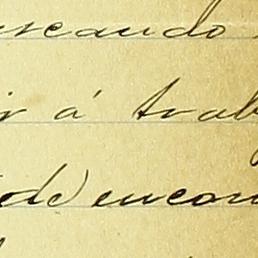 uscando
ir á trab
de) encon